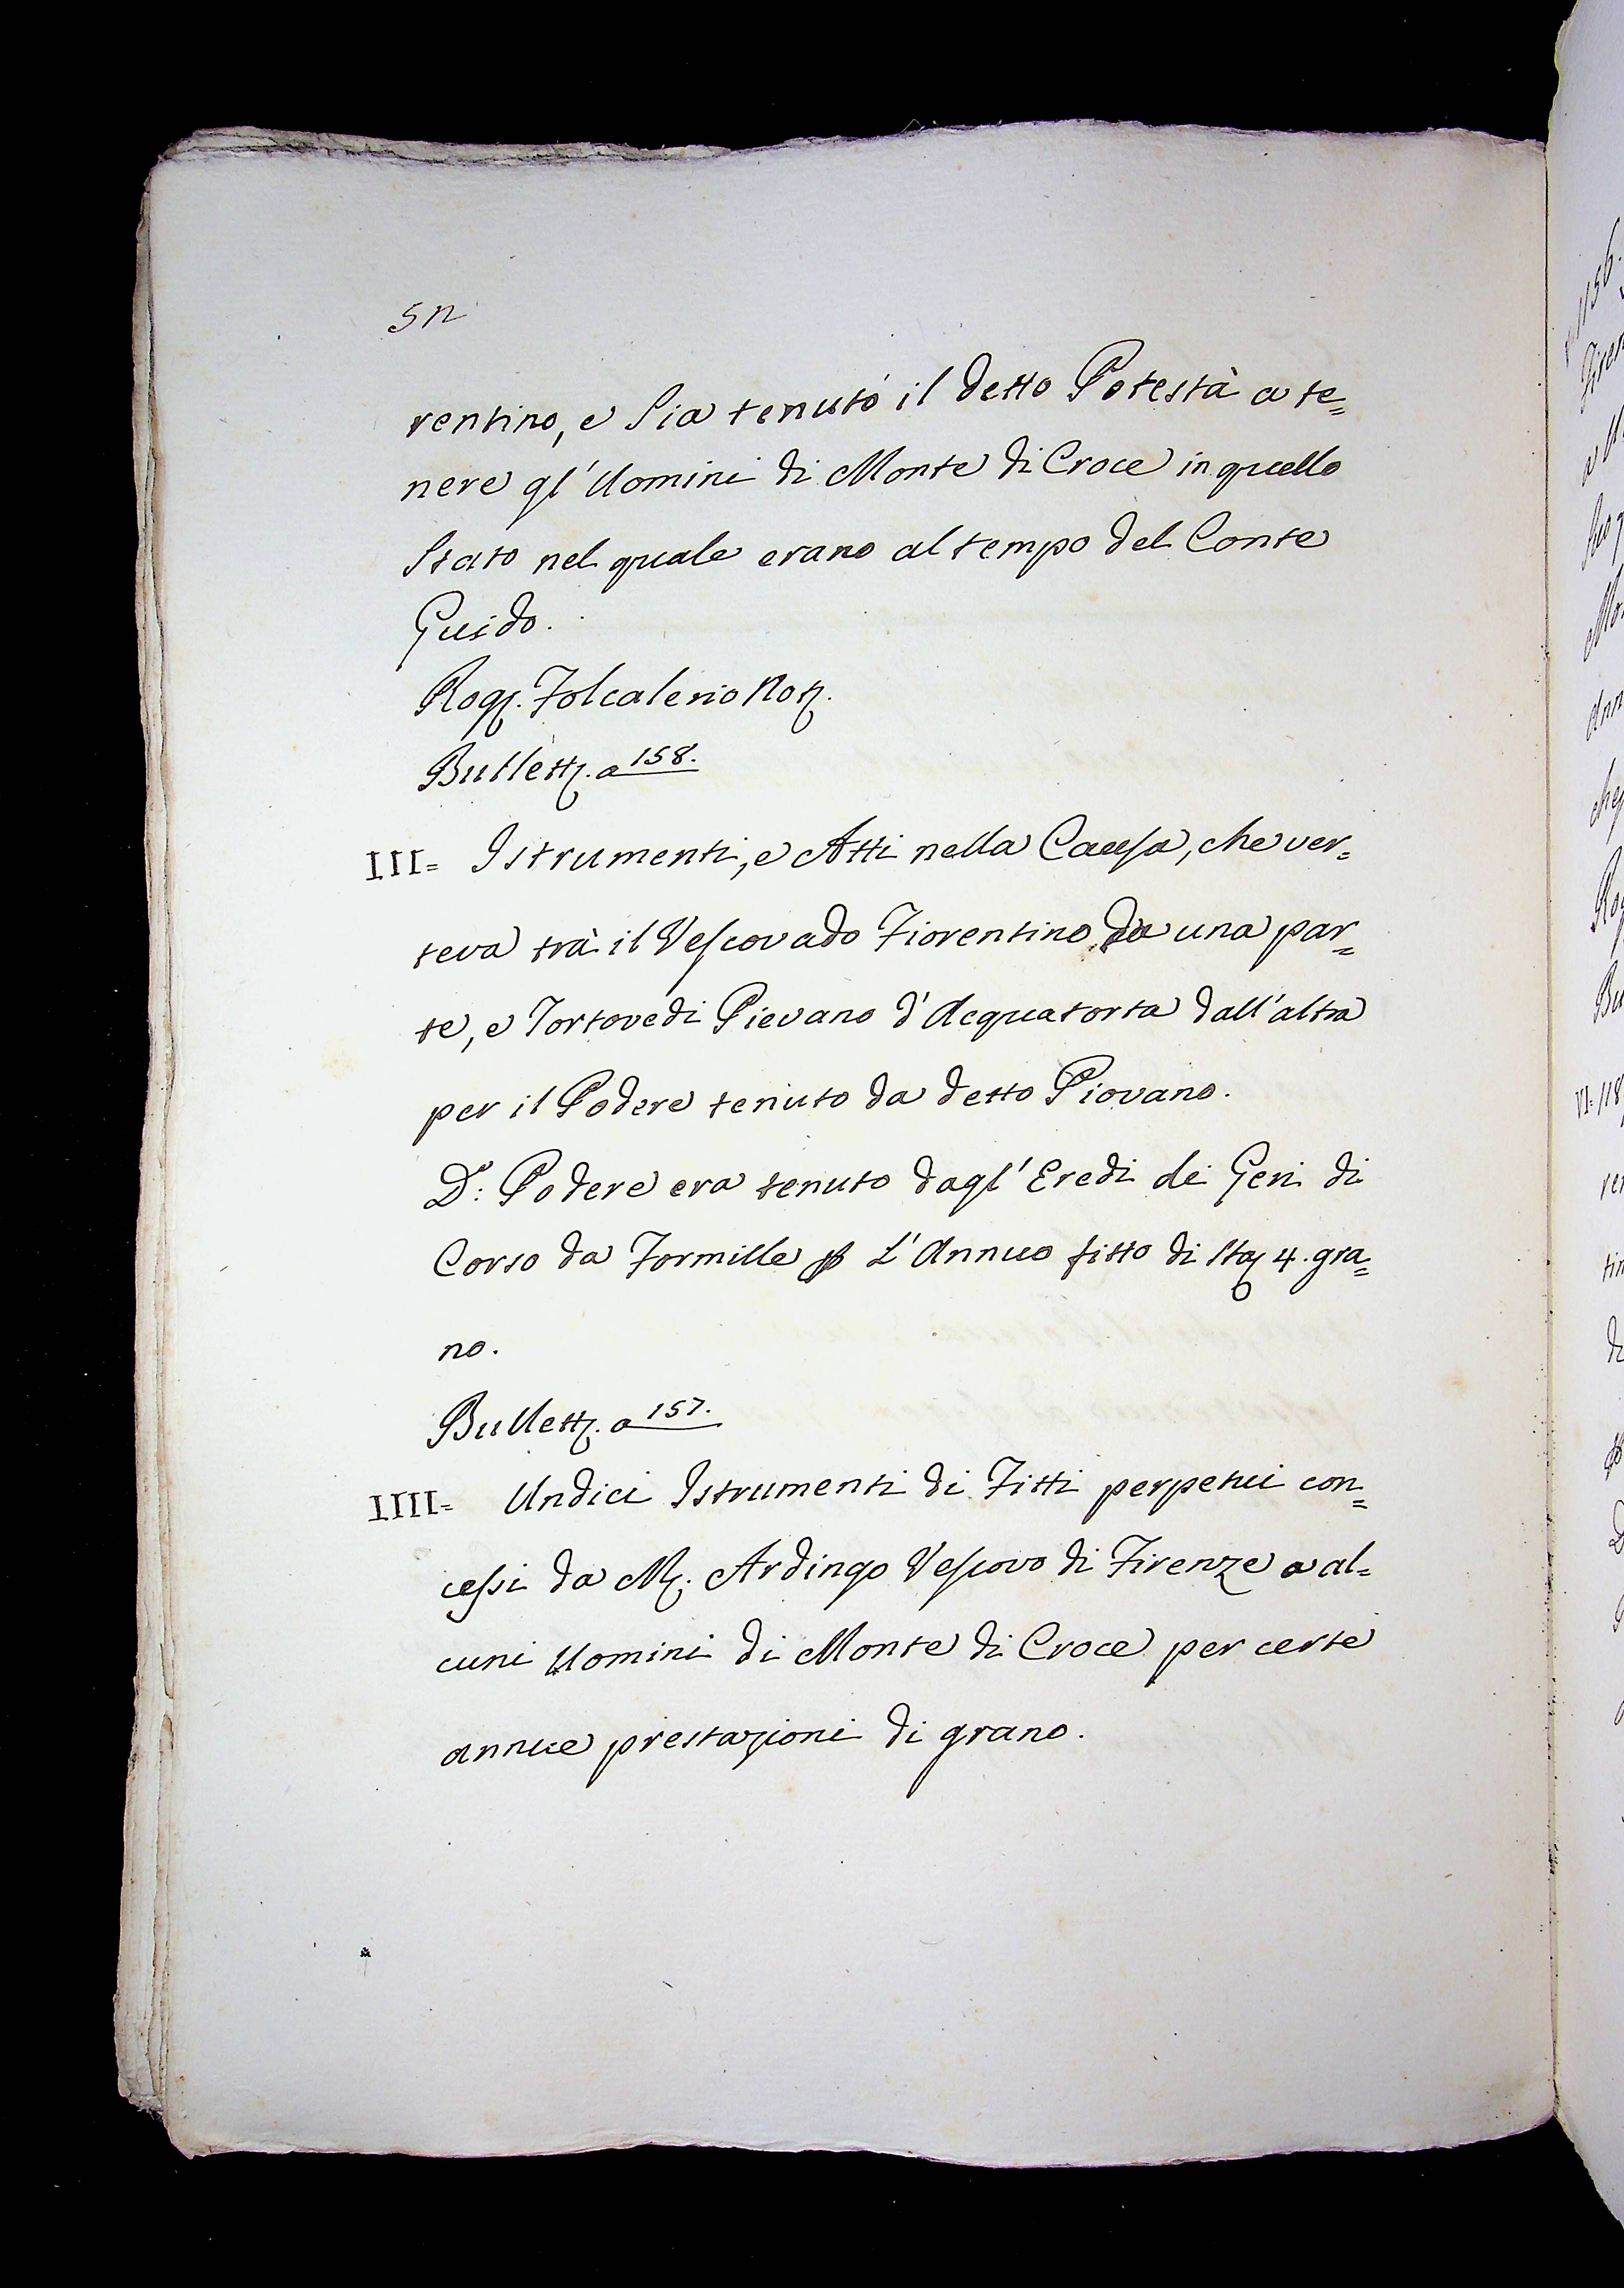 52
rentino, e sia tenuto il detto Potestà a te=
nere gl'Uomini di Monte di Croce in quello
stato nel quale erano al tempo del Conte
Guido.
Rog. Folcalerio Not.
Bullett. a 158.
III= Istrumenti, e Atti nella Causa, che ver=
teva trà il Vescovado Fiorentino da una par=
te, e Tortovedi Pievano d'Acquatorta dall'altra
per il Podere tenuto da detto Piovano.
D.º Podere era tenuto dagl'Eredi di Geri di
Corso da Formille p L'Annuo fitto di sta 4. gra=
no.
Bullett. a 157.
IIII= Undici Istrumenti di Fitti perpetui con=
cessi da M. Ardingo Vescovo di Firenze a al=
cuni Uomini di Monte di Croce per certe
annue prestazioni di grano.